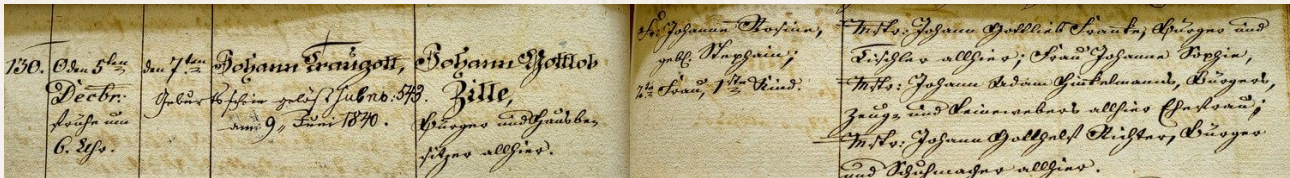 130.
den 5ten
Decbr:
frühe um
6. Uhr.
den 7ten
Johann Traugott,
Geburtsschein gelöst sub no: 543.
am 9. Juni 1840.
Johann Gottlob
Zille,
Bürger und Hausbe-
sitzer allhier.
Fr: Johanne Rosine,
geb. Stephain;
2te Frau, 1stes Kind.
Mstr: Johann Gottlieb Francke, Bürger und
Tischler allhier; Frau Johanne Sophie,
Mstr: Johann Adam Bürgers,
Zeug- und Leinewebers allhier Ehefrau;
Mstr: Johann Gotthelf Richter, Bürger
und Schuhmacher allhier.